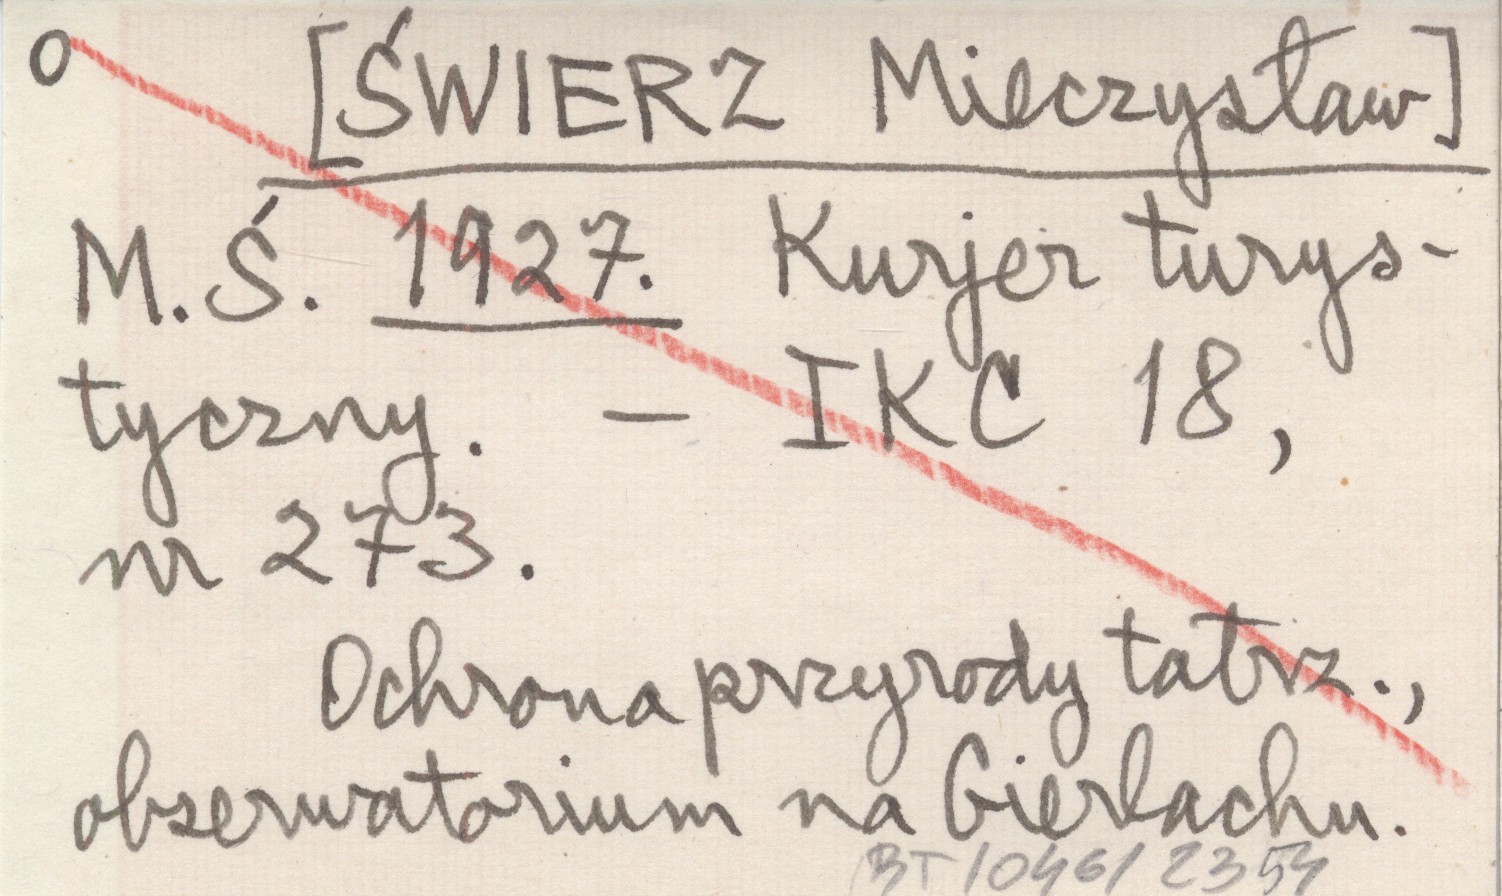 o [ŚWIERZ Mieczysław]
M.Ś. 1927. Kurjer turys-
tyczny. — IKC 18,
nr 273.
Ochrona przyrody tatrz.,
obserwatorium na Gierlachu.
BT/046/2354